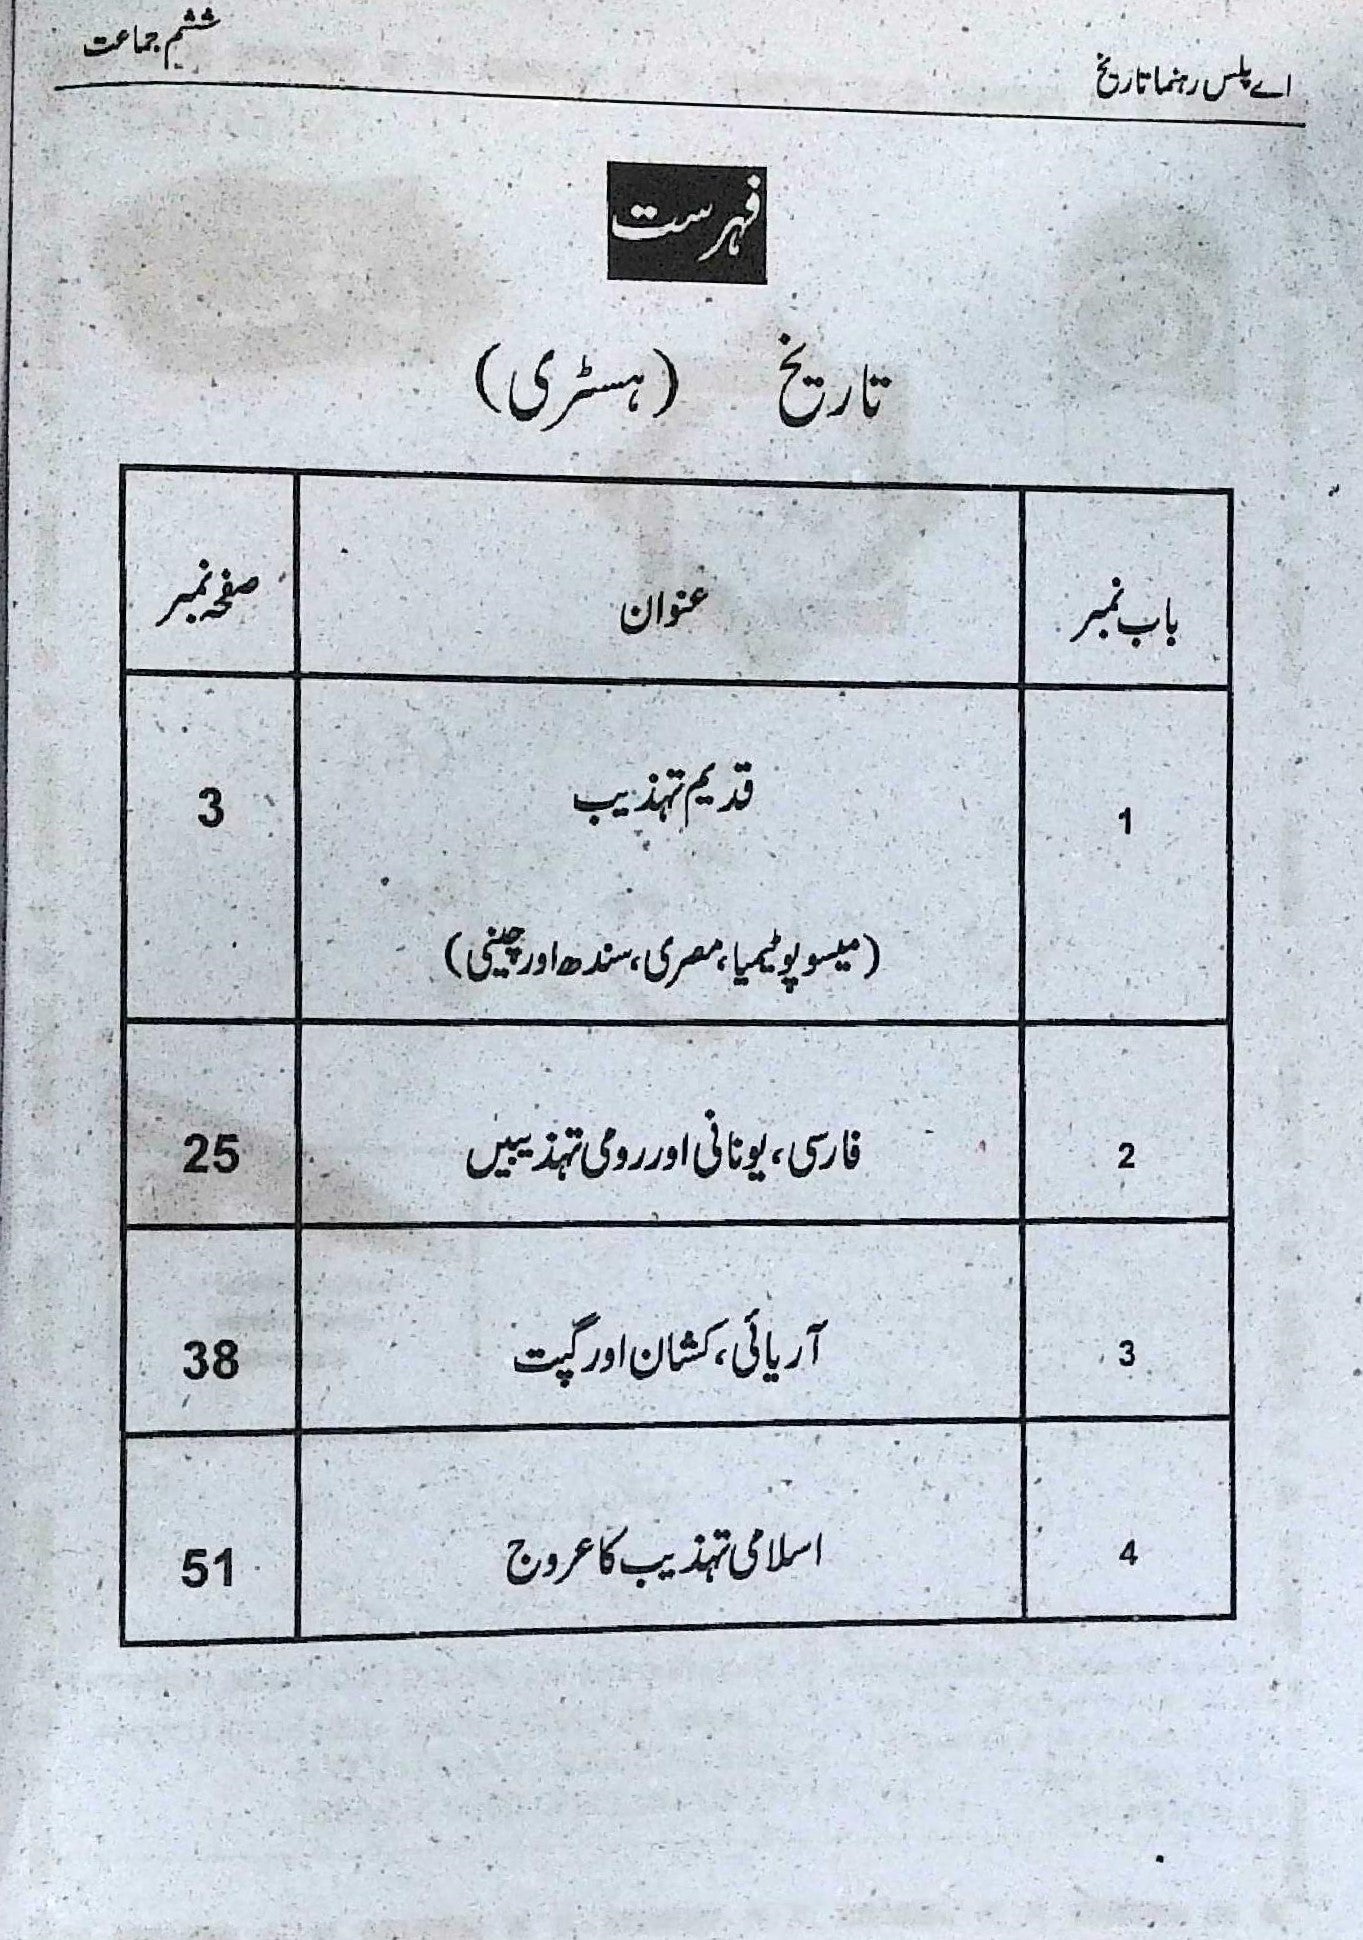 اے پلس رہنما تاریخ
ششم جماعت
فہرست
تاریخ (ہسٹری)
باب نمبر عنوان صفحہ نمبر
1 قدیم تہذیب 3
(میسوپوٹیمیا، مصری، سندھ اور چینی)
2 فارسی، یونانی اور رومی تہذیبیں 25
3 آریائی، کشان اور گپت 38
4 اسلامی تہذیب کا عروج 51